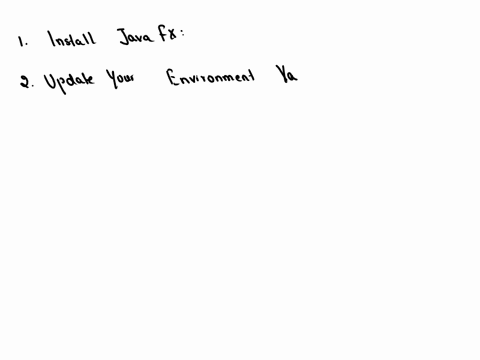 1. Install Java Fx:
2. Update Your Environment Va